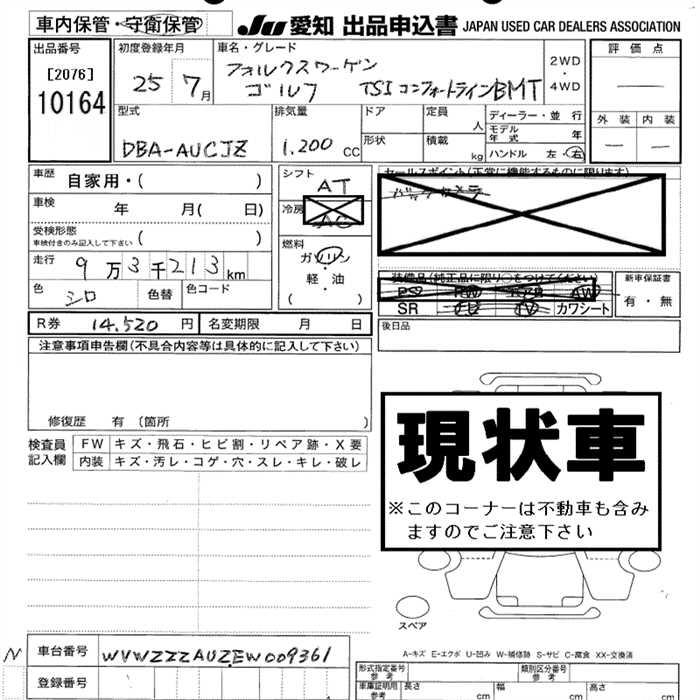 車内保管・守衛保管 JU 愛知 出品申込書 JAPAN USED CAR DEALERS ASSOCIATION
出品番号 [2076] 10164
初度登録年月 25 7月
車名・グレード フォルクスワーゲン
ゴルフ TSI コンフォートラインBMT
2WD・4WD
評価点
外装 内装
型式 DBA-AUCJZ
排気量 1.200 cc
ドア 定員 人
形状 積載 kg
ディーラー・並行
モデル年式 年
ハンドル 左・右
車歴 自家用・( )
シフト AT
セールスポイント(正常に機能するものに限ります)
車検 年 月( 日)
冷房 AC
バックカメラ
受検形態
車検付きのみ記入して下さい ( )
燃料 ガソリン・軽・油 ( )
走行 9万3千213km
装備品(純正品に限り○をつけてください)
新車保証書 有・無
PS PW AW
SR TV カワシート
色 シロ 色替 色コード
後日品
R券 14.520 円 名変期限 月 日
注意事項申告欄(不具合内容等は具体的に記入して下さい)
修復歴 有 (箇所 )
検査員記入欄
FW キズ・飛石・ヒビ割・リペア跡・X要
内装 キズ・汚レ・コゲ・穴・スレ・キレ・破レ
現状車
※このコーナーは不動車も含み
ますのでご注意下さい
スペア
A-キズ E-エクボ U-凹み W-補修跡 S-サビ C-腐食 XX-交換済
N 車台番号 WVWZZZAUZEW009361
登録番号
形式指定番号 参考 類別区分番号 参考
車庫証明用 参考 長さ cm 幅 cm 高さ cm